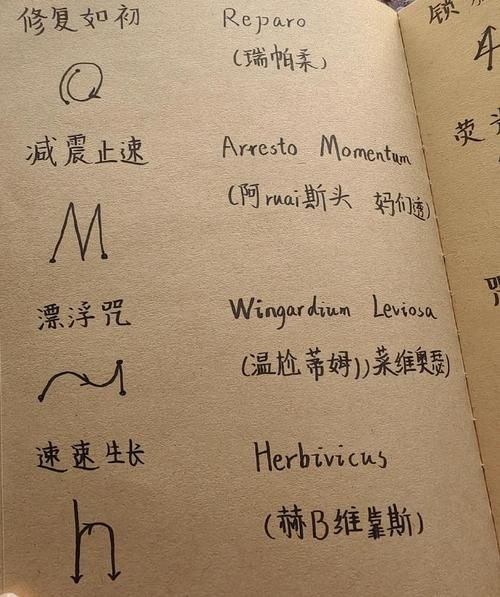 修复如初 Reparo
(瑞帕柔)
减震止速 Arresto Momentum
(阿ruai斯头 妈们透)
漂浮咒 Wingardium Leviosa
(温尬蒂姆))菜维奥瑟)
速速生长 Herbivicus
(赫B维靠斯)
锁
荧
咒